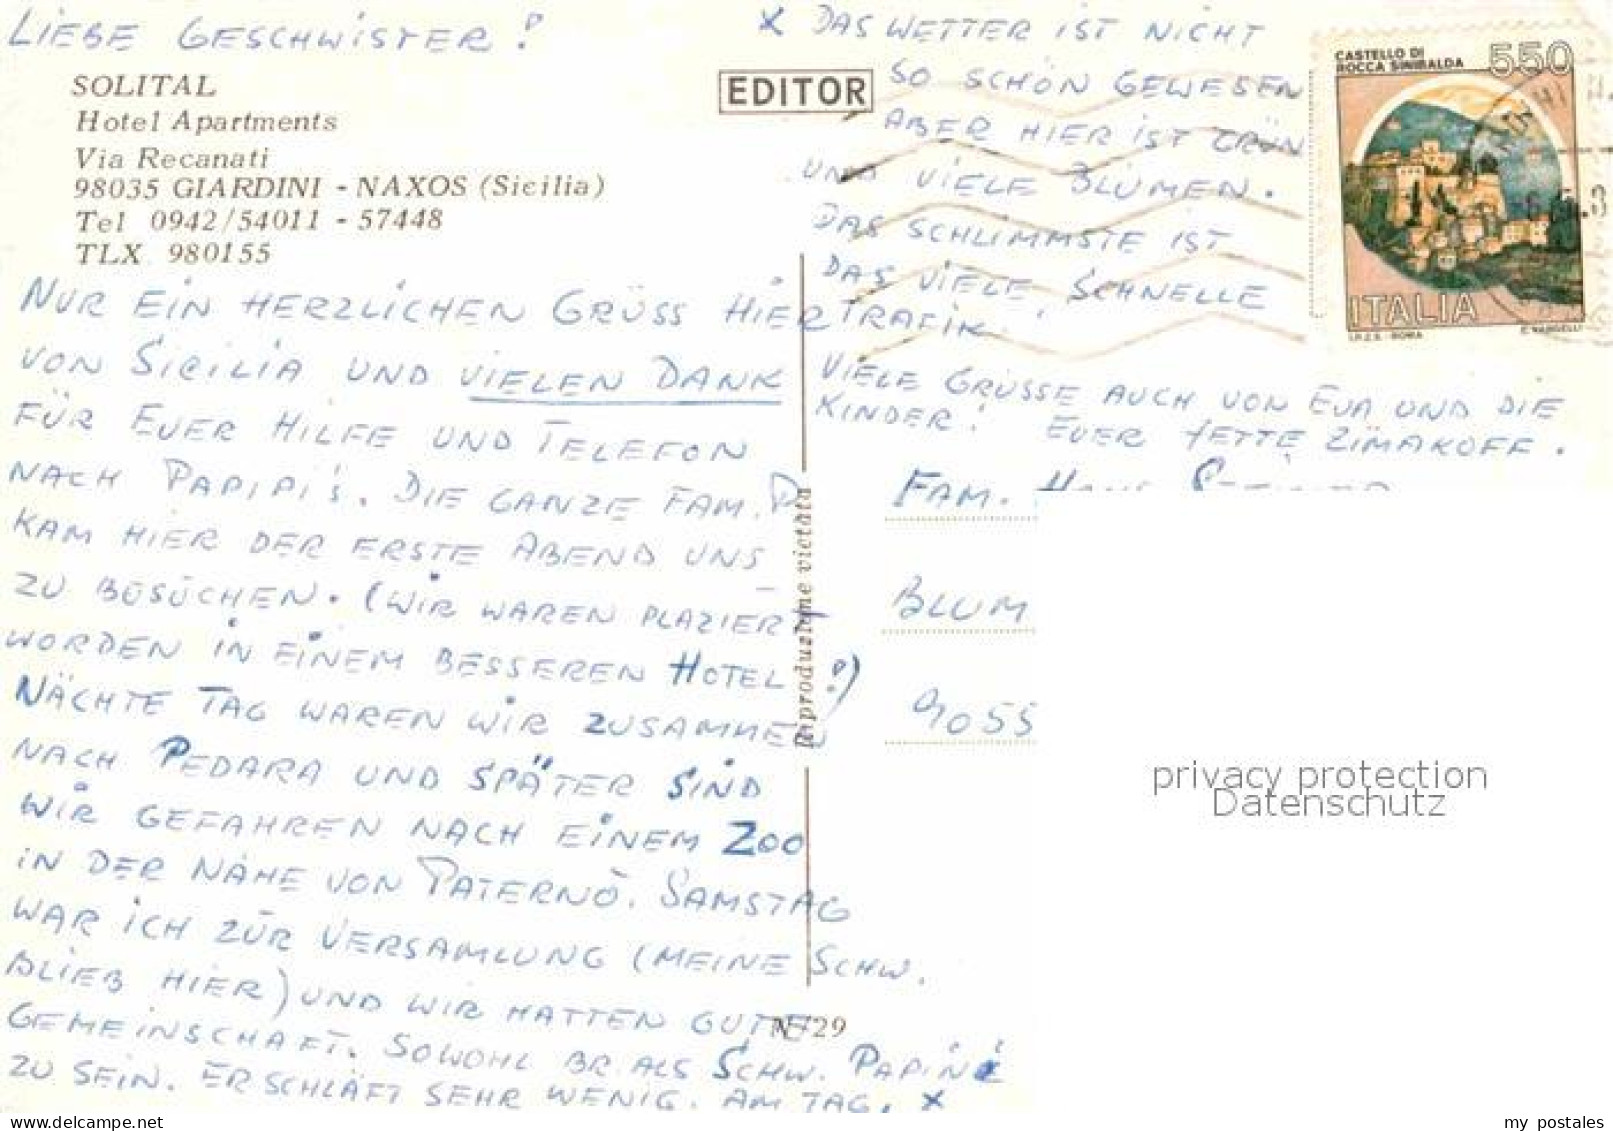 LIEBE GESCHWISTER!
SOLITAL
Hotel Apartments
Via Recanati
98035 GIARDINI - NAXOS (Sicilia)
Tel 0942/54011 - 57448
TLX 980155
NUR EIN HERZLICHEN GRÜSS HIER
VON SICILIA UND VIELEN DANK
FÜR EUER HILFE UND TELEFON
NACH PAPIPI'S. DIE GANZE FAM. P
KAM HIER DER ERSTE ABEND UNS
ZU BESÜCHEN. (WIR WAREN PLAZIERT
WORDEN IN EINEM BESSEREN HOTEL!)
NÄCHTE TAG WAREN WIR ZUSAMMEN
NACH PEDARA UND SPÄTER SIND
WIR GEFAHREN NACH EINEM ZOO
IN DER NÄHE VON PATERNÒ. SAMSTAG
WAR ICH ZÜR VERSAMLUNG (MEINE SCHW.
BLIEB HIER) UND WIR HATTEN GUTE
GEMEINSCHAFT. SOWOHL BR. ALS SCHW. PAPINI
ZU SEIN. ER SCHLÄFT SEHR WENIG. AM TAG, X
EDITOR
Riproduzione vietata
N/29
X DAS WETTER IST NICHT
SO SCHÖN GEWESEN
ABER HIER IST GRÜN
UND VIELE BLUMEN.
DAS SCHLIMMSTE IST
DAS VIELE SCHNELLE
TRAFIK.
VIELE GRÜSSE AUCH VON EVA UND DIE
KINDER! EUER JETTE ZIMAKOFF.
FAM.
BLUM
9055
CASTELLO DI
ROCCA SINIBALDA
550
ITALIA
I.P.Z.S. - ROMA
E. VANGELLI
privacy protection
Datenschutz
my postales